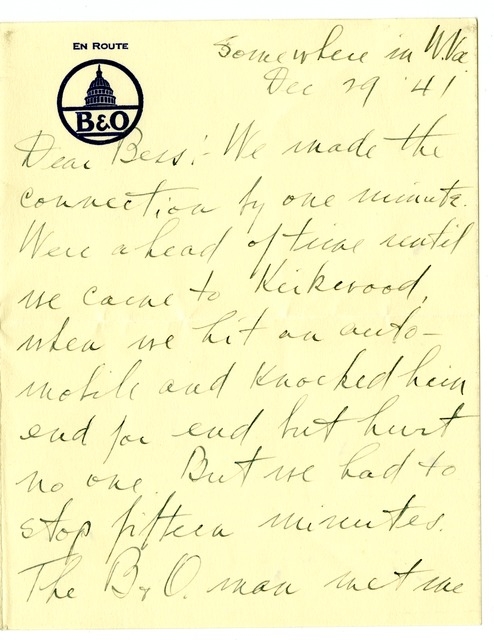 EN ROUTE
B&O
Somewhere in W.Va.
Dec 29 '41
Dear Bess:- We made the
connection by one minute.
Were ahead of time until
we came to Kirkwood,
when we hit an auto-
mobile and knocked him
end for end but hurt
no one. But we had to
stop fifteen minutes.
The B.&O. man met me